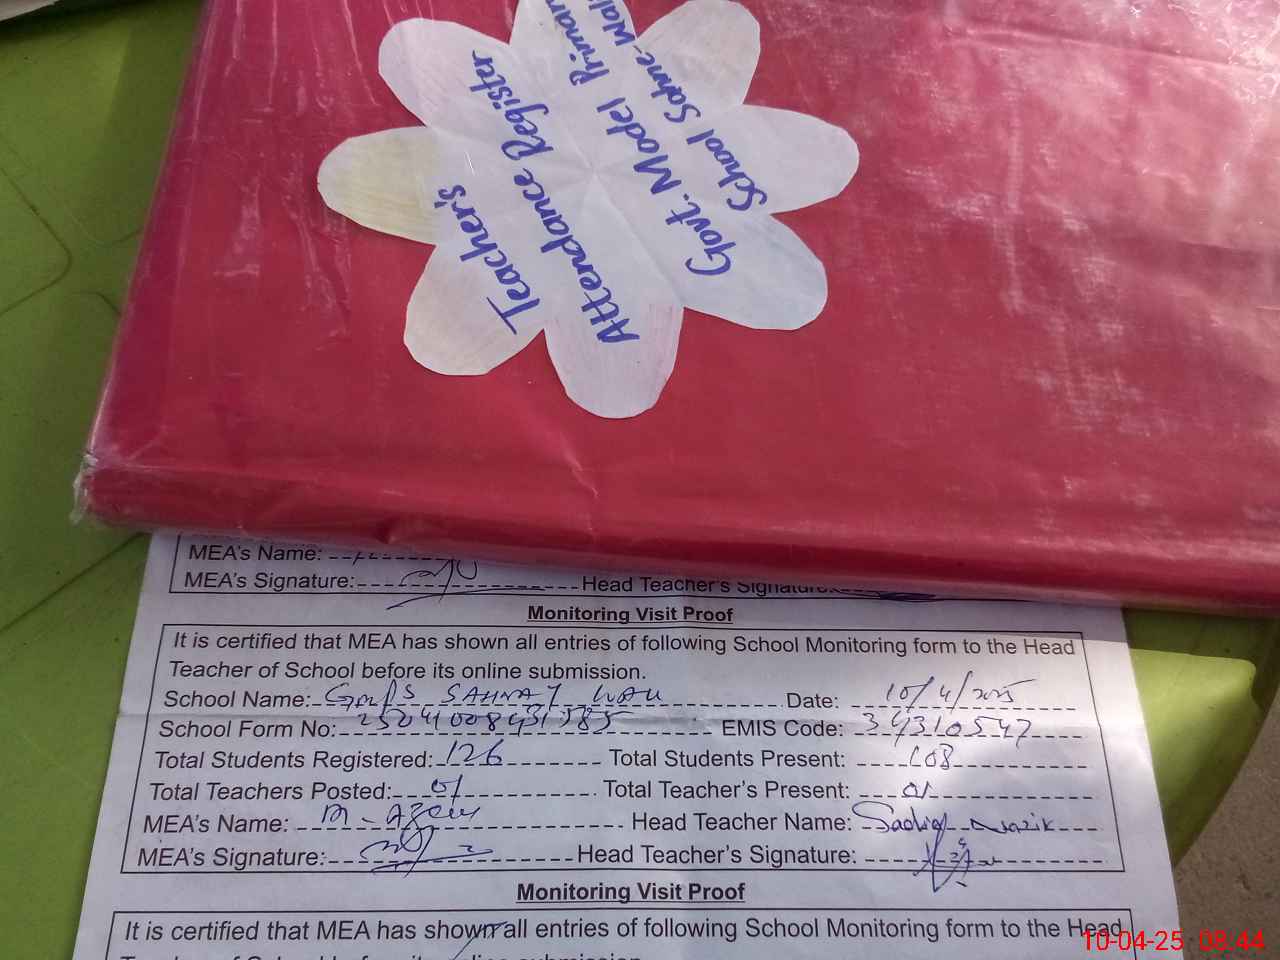 Teacher's
Attendance Register
Govt. Model Primary
School Sahne-wal
MEA's Name:
MEA's Signature: Head Teacher's Signature:
Monitoring Visit Proof
It is certified that MEA has shown all entries of following School Monitoring form to the Head
Teacher of School before its online submission.
School Name: GMPS SAHNAY WALI Date: 10/4/2025
School Form No: EMIS Code: 34310547
Total Students Registered: 126 Total Students Present: 108
Total Teachers Posted: 01 Total Teacher's Present: 01
MEA's Name: M-Azam Head Teacher Name: Sadiqa Nazik
MEA's Signature: Head Teacher's Signature:
Monitoring Visit Proof
It is certified that MEA has shown all entries of following School Monitoring form to the Head
Teacher of School before its online submission.
10-04-25 08:44